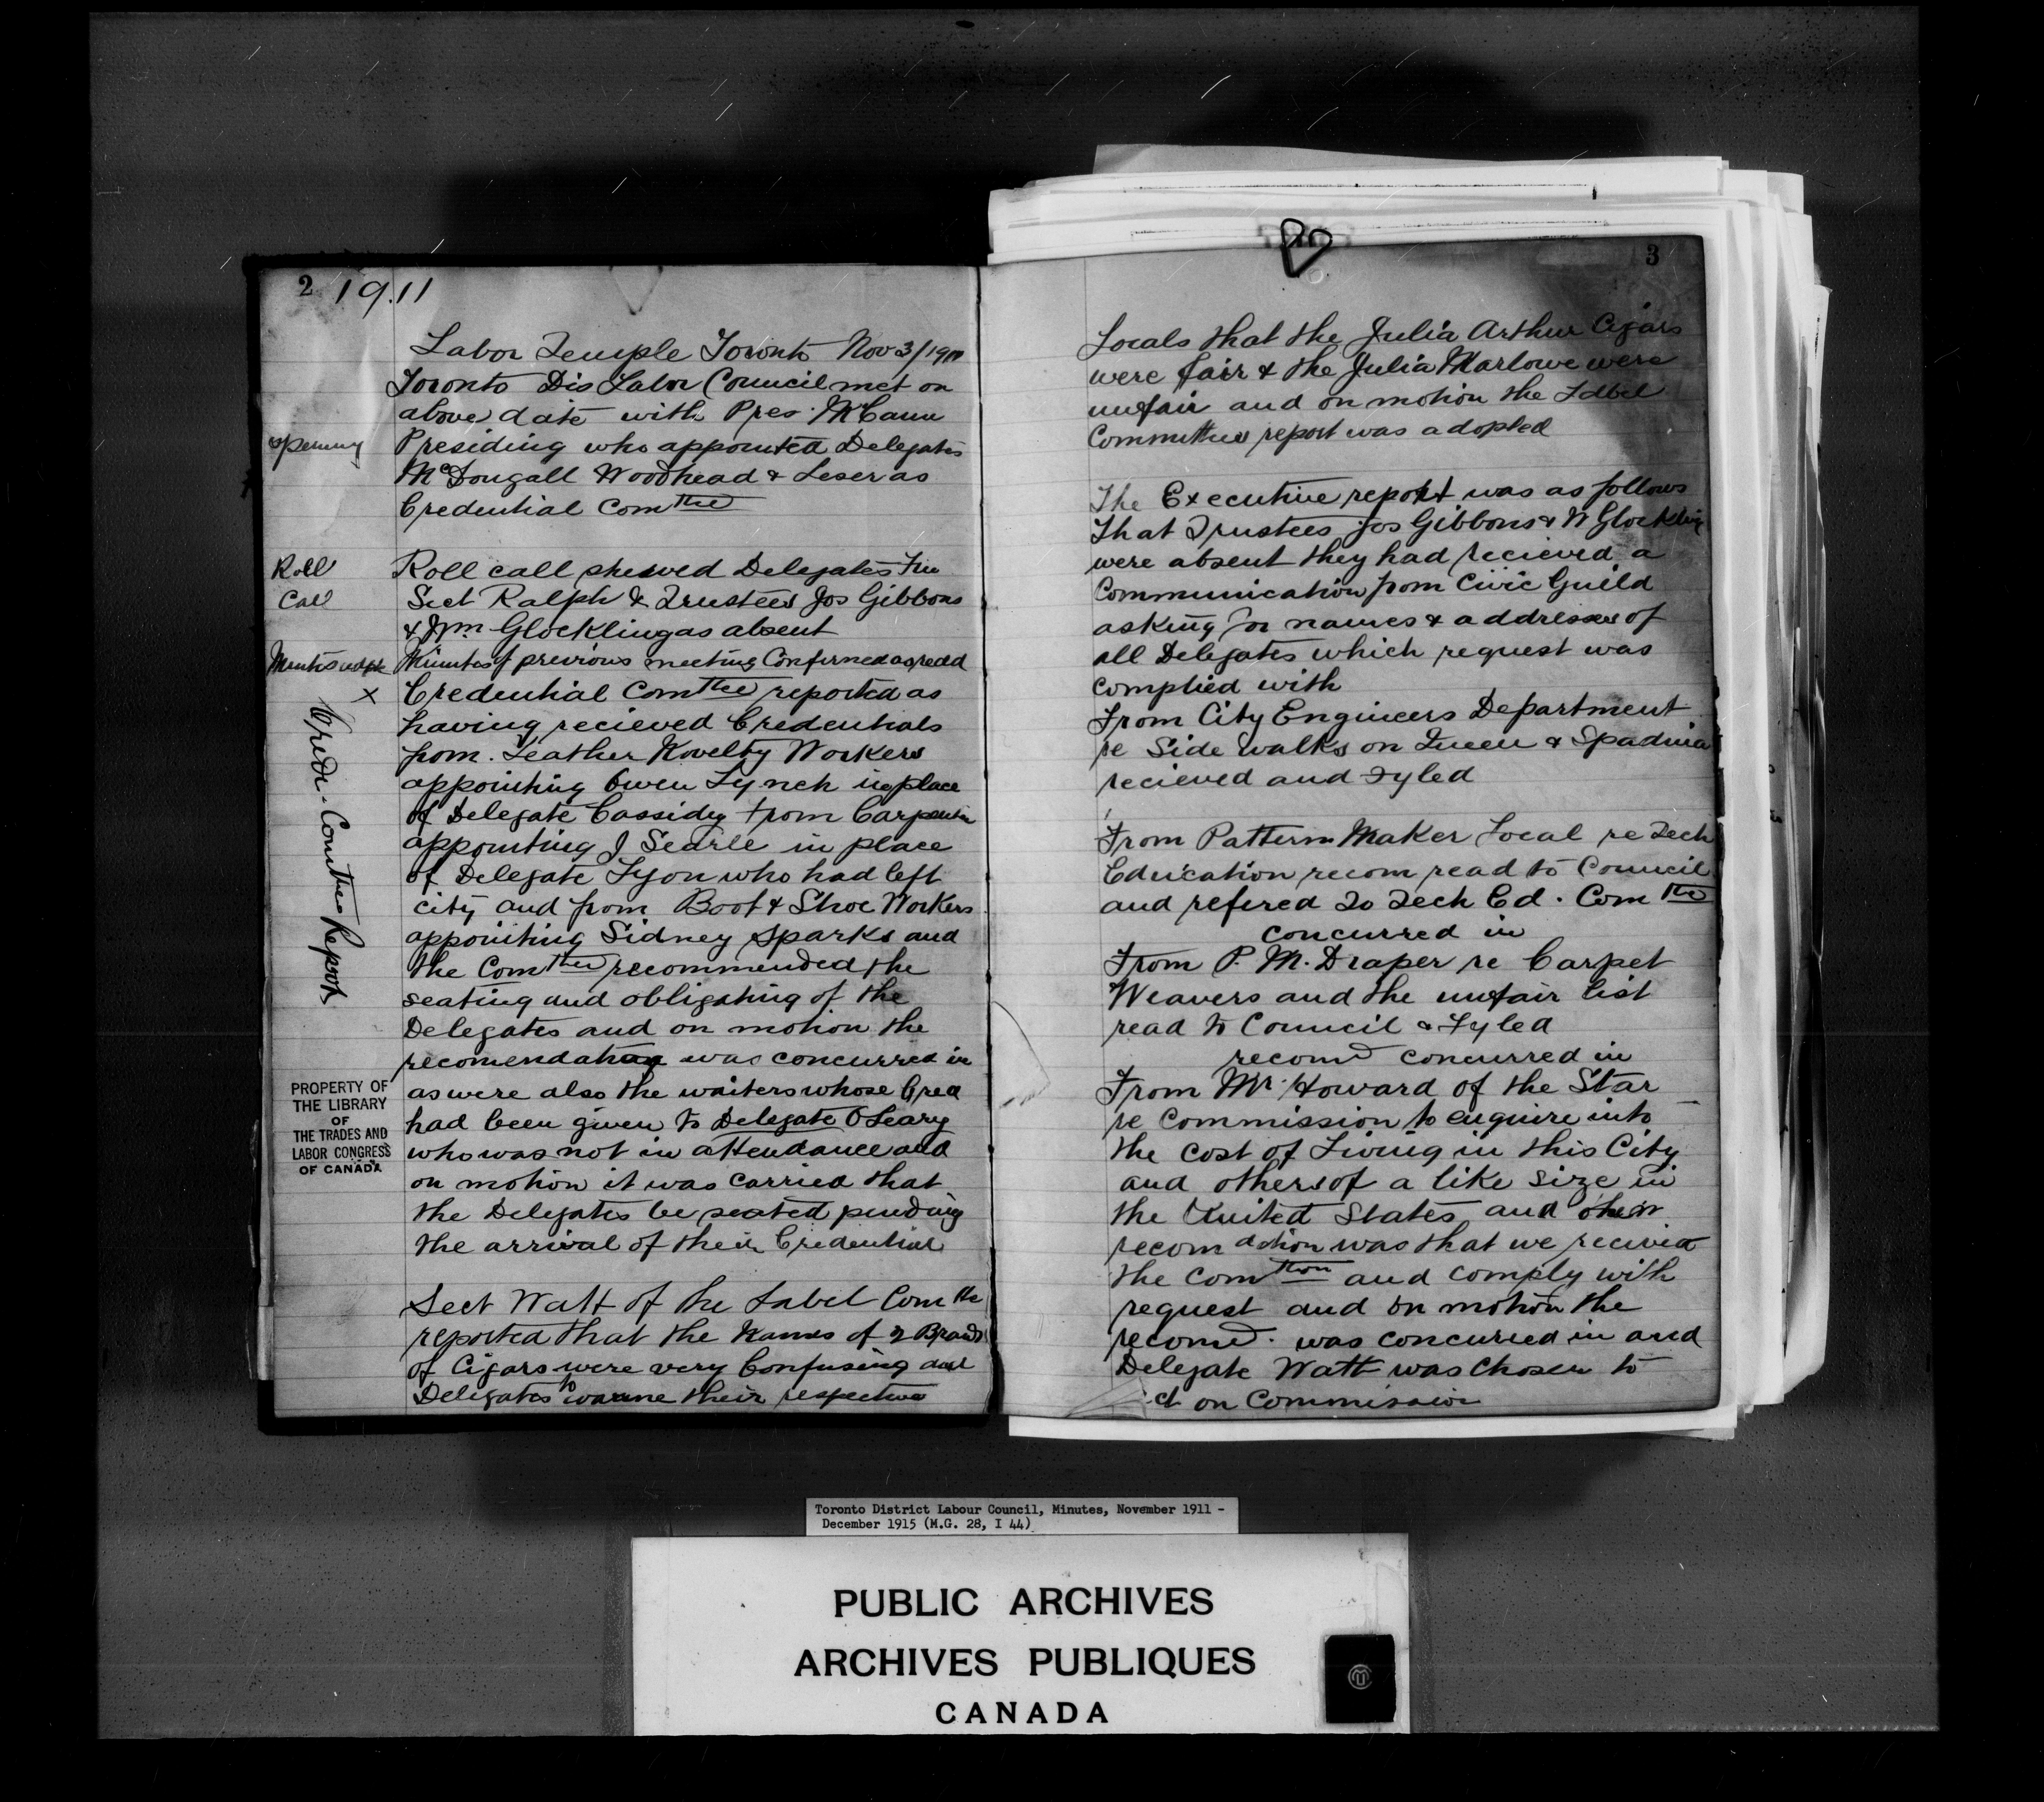 2 1911
Labor Temple Toronto Nov 3/1911
Toronto Dis Labor Council met on
above date with Pres. McCann
opening
Presiding who appointed Delegates
McDougall Woodhead & Leser as
Credential Comttee
Roll
Call
Roll call shewed Delegates
Sect Ralph & Trustees Jos Gibbons
& Wm Glockling as absent
Minutes
Minutes of previous meeting Confirmed as read
×
Credi. Comttee Report
Credential Comttee reported as
having recieved Credentials
from Leather Novelty Workers
appointing Owen Lynch in place
of Delegate Cassidy from Carpenters
appointing J Searle in place
of Delegate Lyon who had left
city and from Boot & Shoe Workers
appointing Sidney Sparks and
the Comttee recommended the
seating and obligating of the
Delegates and on motion the
recomendation was concurred in
as were also the waiters whose Cred
had been given to Delegate O'Leary
who was not in attendance and
on motion it was carried that
the Delegates be seated pending
the arrival of their Credential
PROPERTY OF
THE LIBRARY
OF
THE TRADES AND
LABOR CONGRESS
OF CANADA
Sect Watt of the Label Comtte
reported that the Names of 2 Brands
of Cigars were very Confusing and
Delegates to warne their respective
3
Locals that the Julia Arthur Cigars
were fair & the Julia Marlowe were
unfair and on motion the Label
Committees report was adopted
The Executive report was as follows
That Trustees Jos Gibbons & W Glockling
were absent they had recieved a
Communication from Civic Guild
asking for names & addresses of
all Delegates which request was
complied with
From City Engineers Department
re Side walks on Queen & Spadina
recieved and Fyled
From Pattern Maker Local re Tech
Education recom read to Council
and refered To Tech Ed. Comtte
concurred in
From P. M. Draper re Carpet
Weavers and the unfair list
read to Council & Fyled
recomd concurred in
From Mr. Howard of the Star
re Commission to enquire into
the Cost of Living in this City
and others of a like size in
the United States and their
recomdation was that we recieved
the Comtion and comply with
request and on motion the
recomd. was concurred in and
Delegate Watt was chosen to
on Commission
Toronto District Labour Council, Minutes, November 1911 -
December 1915 (M.G. 28, I 44)
PUBLIC ARCHIVES
ARCHIVES PUBLIQUES
CANADA